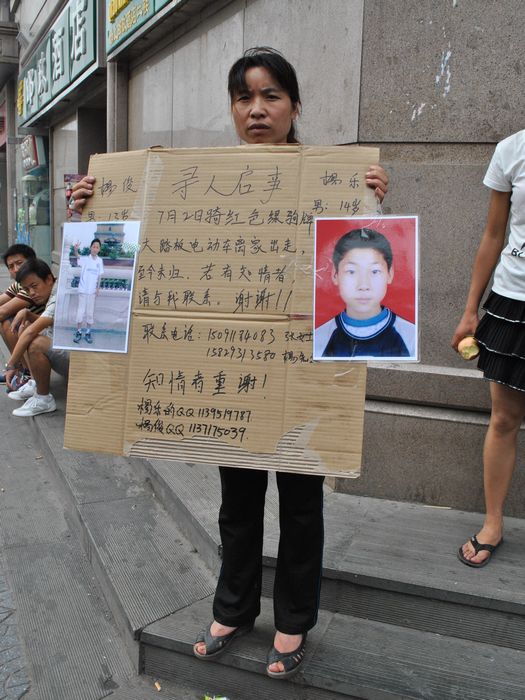 寻人启事
杨俊
男：12岁
杨乐
男：14岁
7月2日骑红色绿驹牌
大踏板电动车离家出走，
至今未归，若有知情者，
请与我联系。谢谢！！
联系电话：15091184083 张女士
15829313580 杨先
知情者重谢！
杨乐的QQ 1139519787
杨俊QQ 1137175039.
酒店